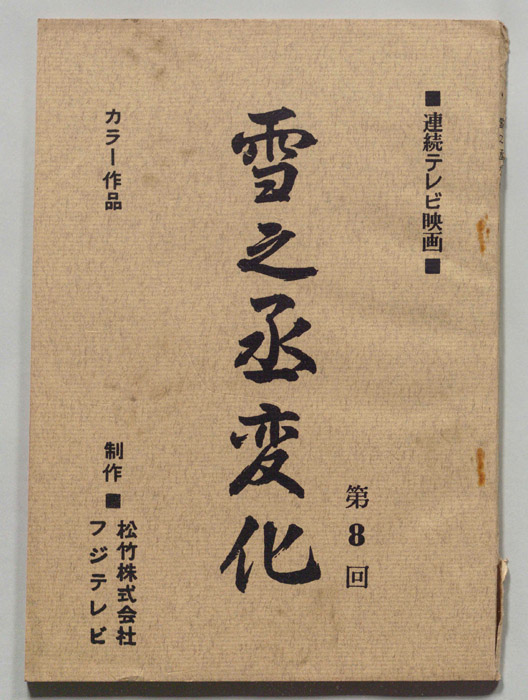 ■連続テレビ映画■
雪之丞変化
第8回
カラー作品
制作■
松竹株式会社
フジテレビ